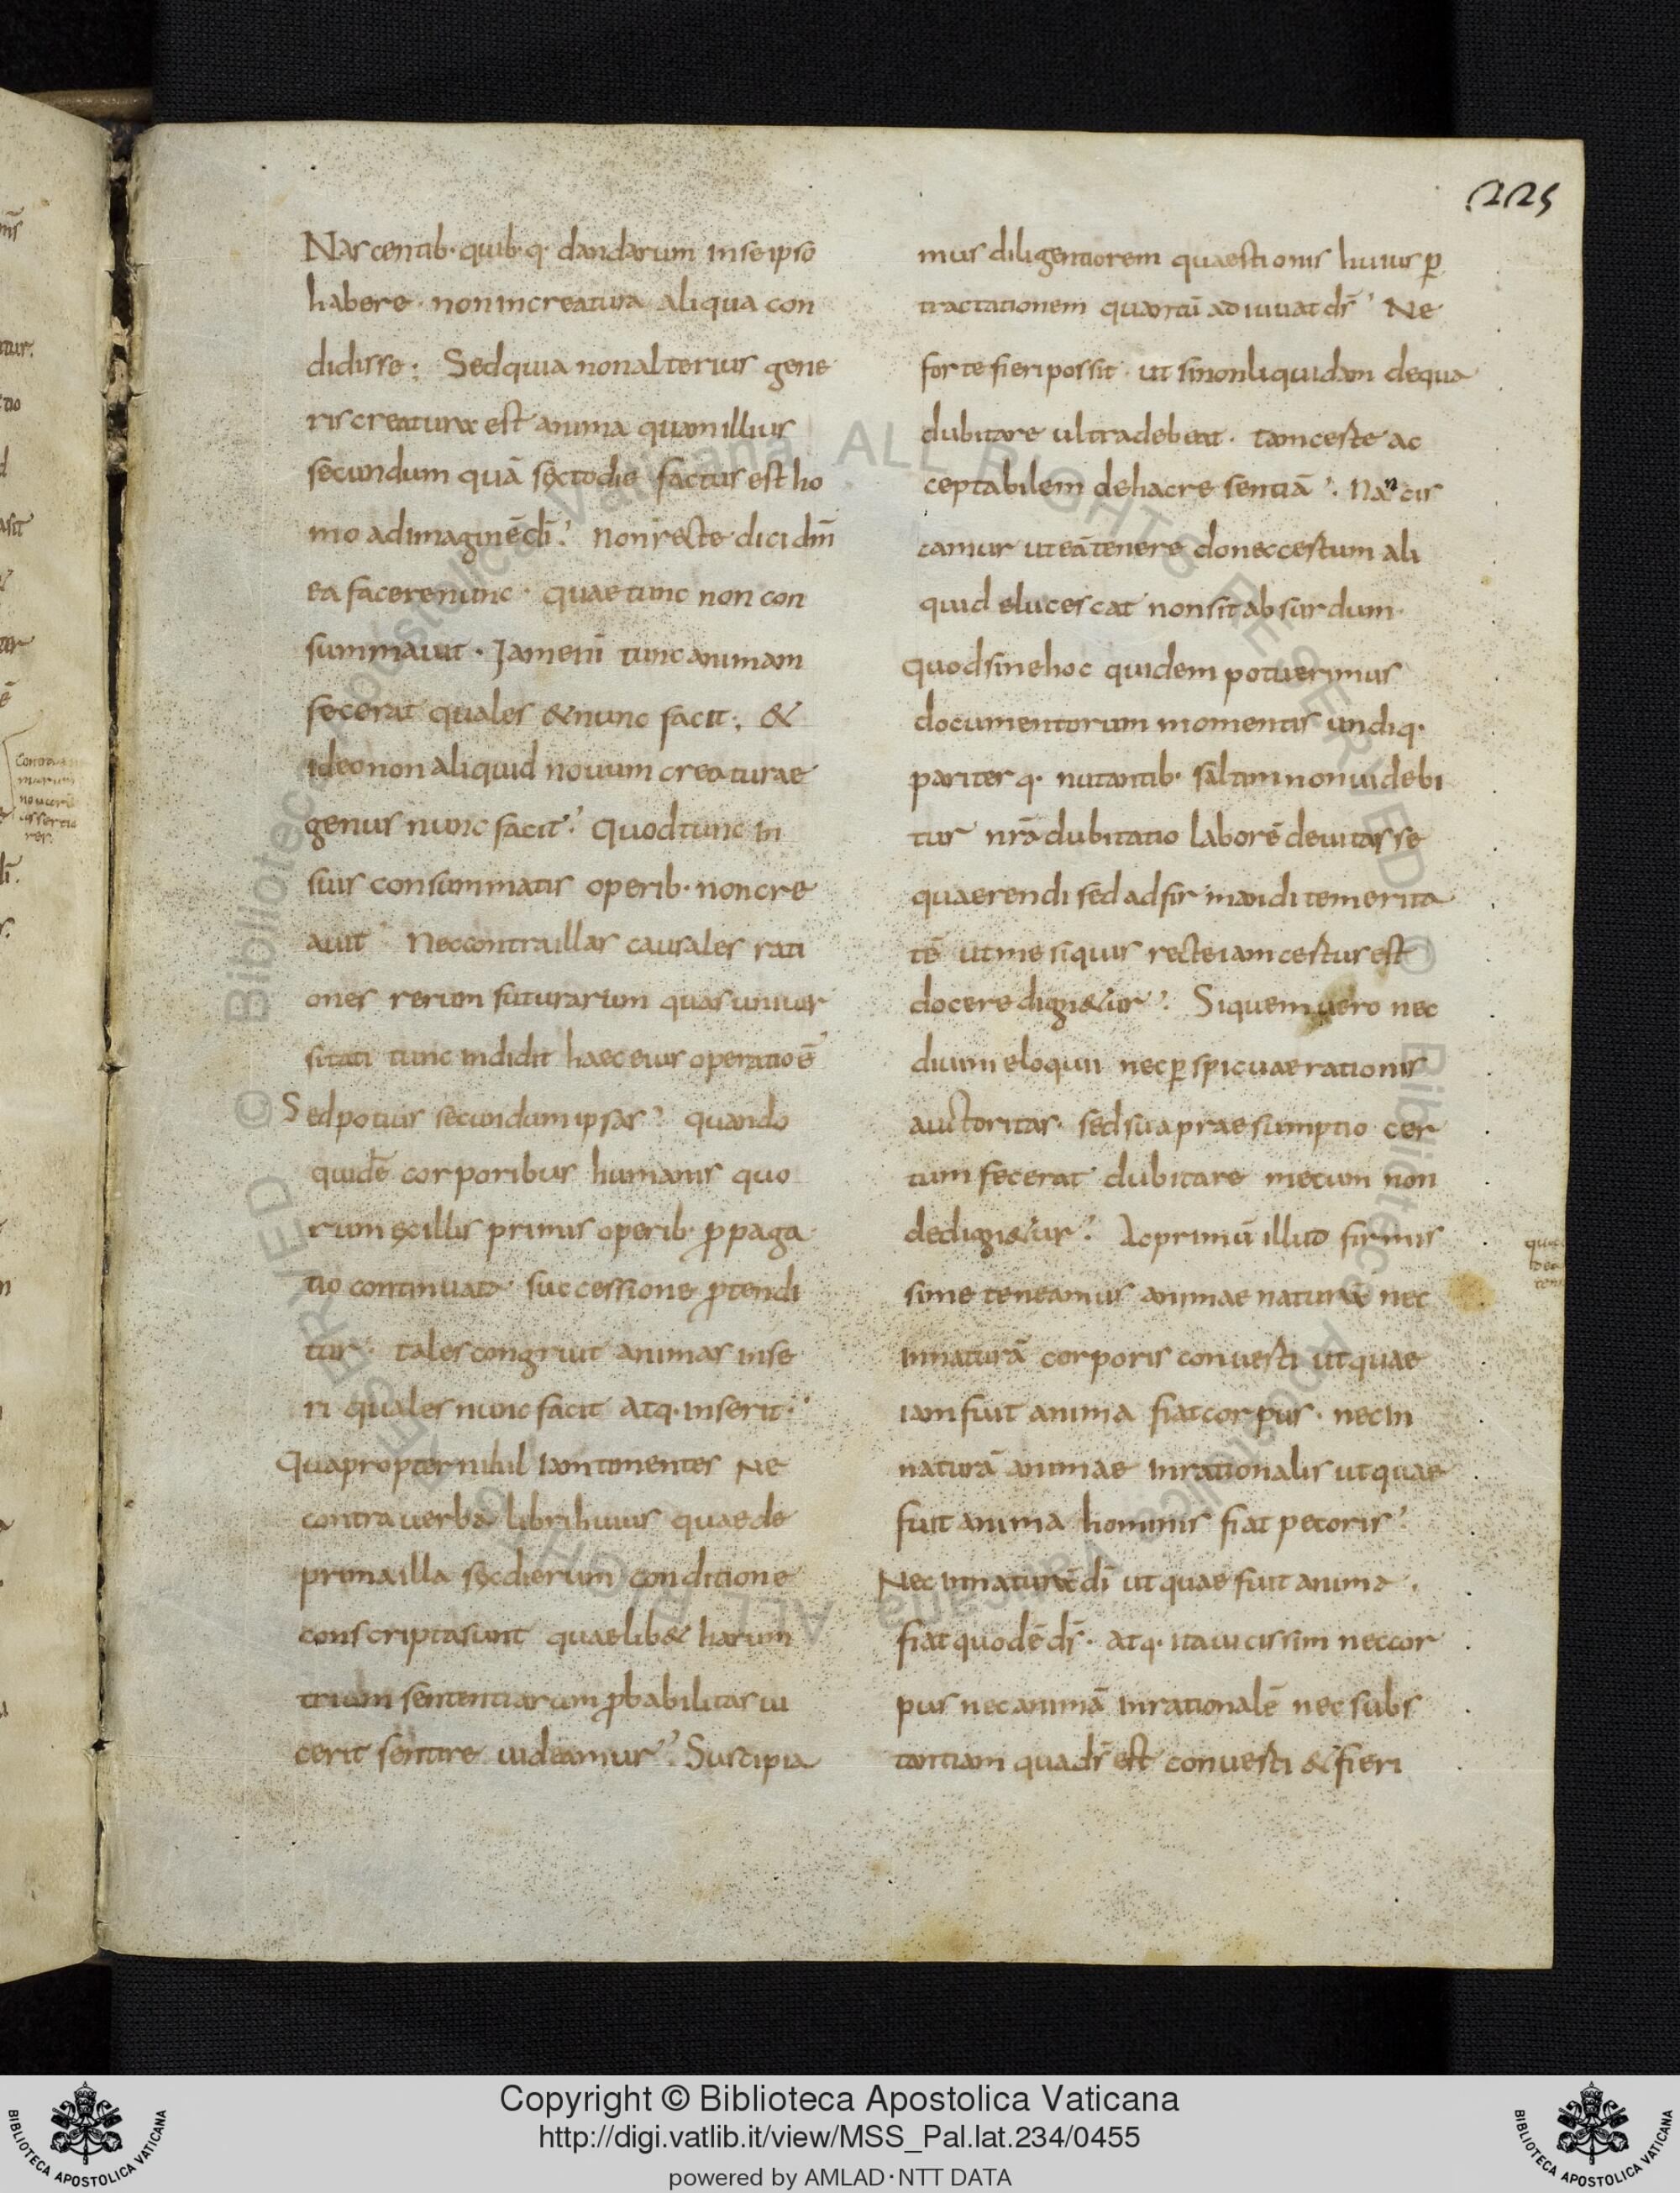 225
Nascentib· quib·q· dandarum inseipso
habere· nonincreatura aliqua con
didisse; Sedquia nonalterius gene
riscreaturae est anima quamillius
secundum quā sextodie factus est ho
mo adimaginē di̅; nonrecte dici dm̅
ea facerenunc· quaetunc non con
summauit· Jameni̅ tunc animam
fecerat quales & nunc facit; &
ideononaliquid nouum creaturae
genus nunc facit; quodtunc in
suis consummatis operib· noncre
auit Neccontraillas causales rati
ones rerum futurarum quasuniuer
sitati tunc indidit haec eius operatio ē
Sedpotius secundumipsas; quando
quidē corporibus humanis quo
rumexillis primis operib· ꝓpaga
tio continuata successione ꝓtendi
tur· tales congruit animas inse
ri quales nunc facit atq· inserit·
Quapropternihil iamtimentes Ne
contrauerba librihuius quaede
primailla sexdierum conditione
conscriptasunt quaelib& harum
trium sententiarum ꝓbabilitas ui
cerit sentire uideamur; Suscipia
mus diligentiorem quaestionis huius ꝑ
tractationem quantū adiuuat ds̅ Ne
forte fieri possit· ut sinonliquidam dequa
dubitare ultradebeat· tamcerte ac
ceptabilem dehacre sentiā; Nan cis
camur uteātenere doneccertum ali
quid elucescat nonsit absurdum·
quodsinehoc quidem potuerimus
documentorum momentis undiq·
pariterq· nutantib· saltimnonuidebi
tur nr̅a dubitatio laborē deuitasse
quaerendi sed adfirmandi temerita
tē utme siquis recteiamcertus est
docere dign&ur; Siquemuero nec
diuini eloquii necꝑspicuaerationis
auctoritas· sedsuapraesumptio cer
tum fecerat dubitare mecum non
dedign&ur; Adprimū illud firmis
sime teneamus animae naturae nec
innaturā corporis conuerti utquae
iamfuit anima fiatcorpus· necin
naturā animae inrationalis utquae
fuit anima hominis fiat pecoris;
Nec innaturae di̅ utquae fuit anima·
fiat quodē ds̅· atq· itauicissim neccor
pus necanimā inrationalē nec subs
tantiam quads̅ est conuerti & fieri
Copyright © Biblioteca Apostolica Vaticana
http://digi.vatlib.it/view/MSS_Pal.lat.234/0455
powered by AMLAD·NTT DATA